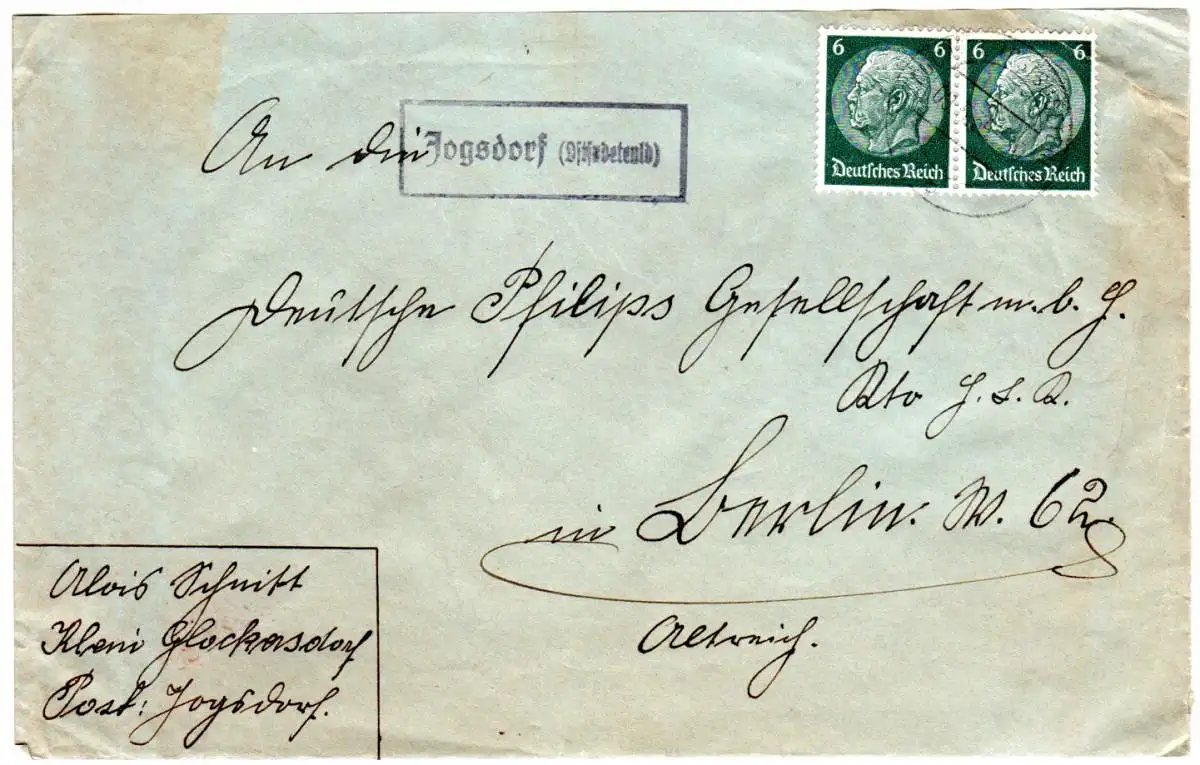 6 6 6 6
Deutsches Reich Deutsches Reich
An die
Jogsdorf (Ostsudetenld)
Deutsche Philips Gesellschaft m. b. H.
Kto H. S. K.
in Berlin. W. 62.
Altreich.
Alois Schnitt
Klein Glockersdorf
Post: Jogsdorf.